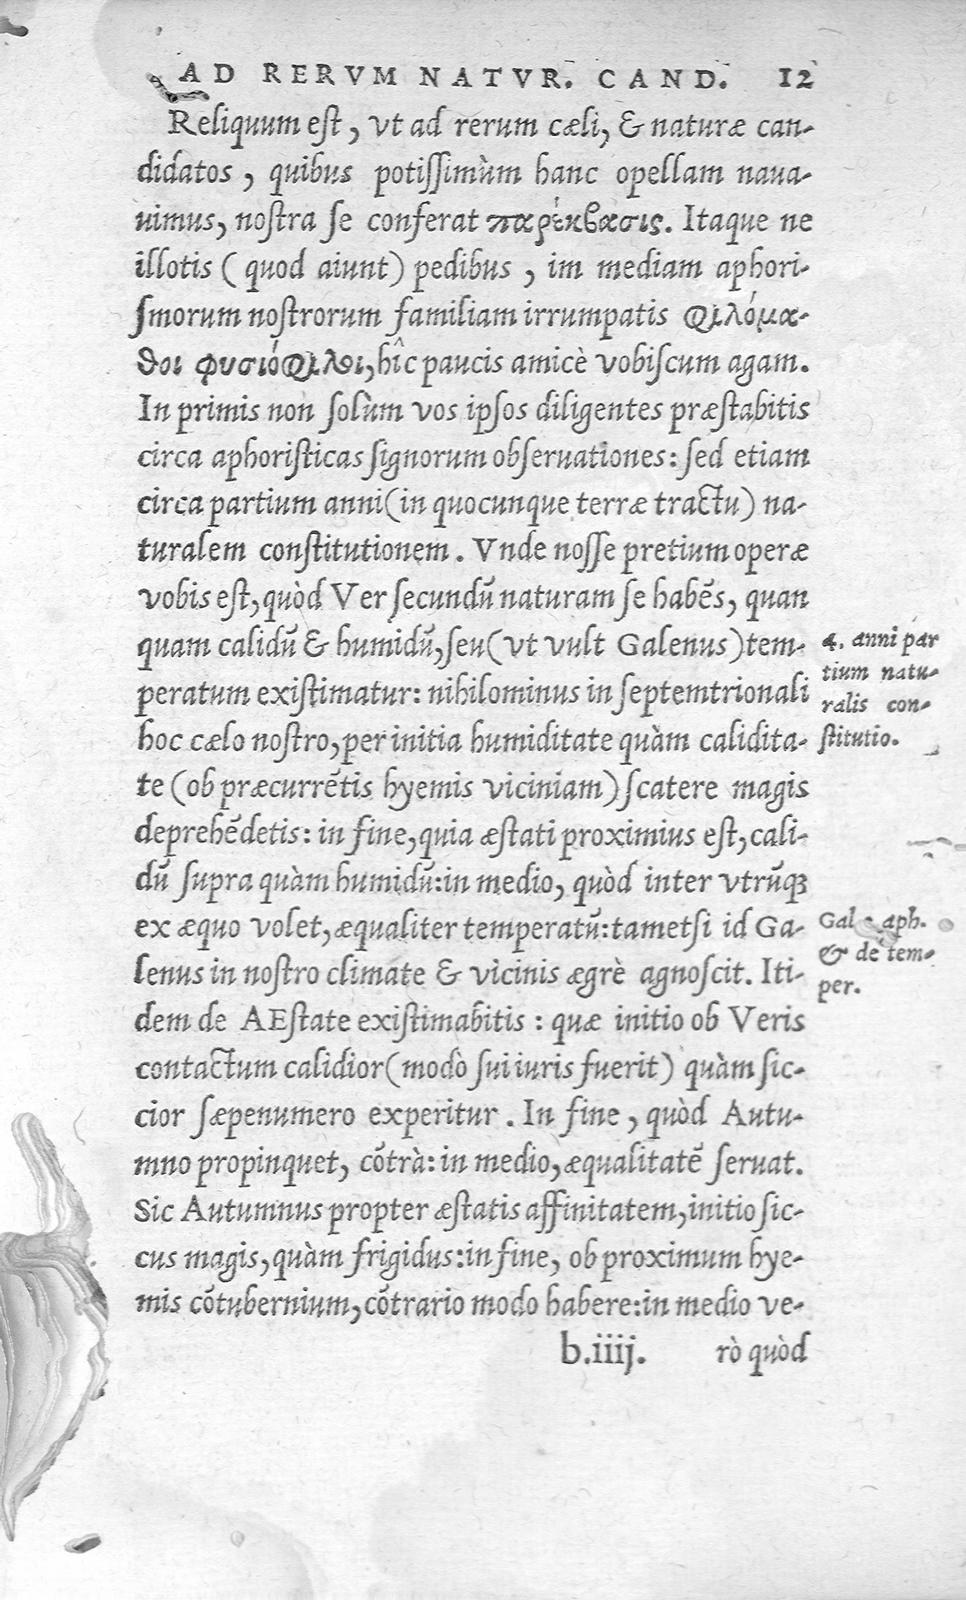 AD RERVM NATVR. CAND. 12
Reliquum est, vt ad rerum cæli, & naturæ can-
didatos, quibus potissimùm hanc opellam naua-
uimus, nostra se conferat παρέκβασις. Itaque ne
illotis (quod aiunt) pedibus, im mediam aphori-
smorum nostrorum familiam irrumpatis φιλόμα-
θοι φυσιόφιλοι, hîc paucis amicè vobiscum agam.
In primis non solùm vos ipsos diligentes præstabitis
circa aphoristicas signorum obseruationes: sed etiam
circa partium anni (in quocunque terræ tractu) na-
turalem constitutionem. Vnde nosse pretium operæ
vobis est, quòd Ver secundū naturam se habēs, quan
quam calidū & humidū, seu (vt vult Galenus) tem-
peratum existimatur: nihilominus in septemtrionali
hoc cælo nostro, per initia humiditate quàm calidita-
te (ob præcurrētis hyemis viciniam) scatere magis
deprehēdetis: in fine, quia æstati proximius est, cali-
dū supra quàm humidū: in medio, quòd inter vtrūq;
ex æquo volet, æqualiter temperatū: tametsi id Ga-
lenus in nostro climate & vicinis ægrè agnoscit. Iti-
dem de AEstate existimabitis: quæ initio ob Veris
contactum calidior (modò sui iuris fuerit) quàm sic-
cior sæpenumero experitur. In fine, quòd Autu-
mno propinquet, cōtrà: in medio, æqualitatē seruat.
Sic Autumnus propter æstatis affinitatem, initio sic-
cus magis, quàm frigidus: in fine, ob proximum hye-
mis cōtubernium, cōtrario modo habere: in medio ve-
b.iiij. rò quòd
4. anni par
tium natu-
ralis con-
stitutio.
Gal. aph.
& de tem-
per.